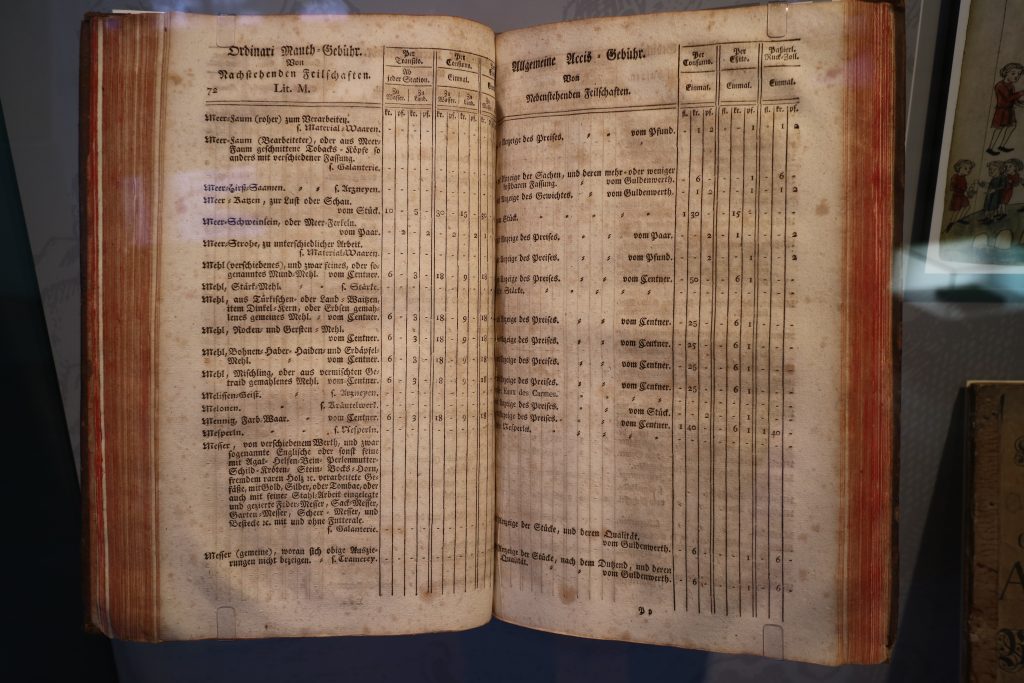 Ordinari Mauth-Gebühr.
Von
Nachstehenden Feilschaften.
72 Lit. M.
Per Transito. Per Consumo.
Ab jeder Station. Einmal.
Zu Wasser. Zu Land. Zu Wasser. Zu Land.
kr. pf. kr. pf. kr. pf. kr. pf. kr.
Meer-Faum (roher) zum Verarbeiten.
s. Material-Waaren.
Meer-Faum (Bearbeiteter), oder aus Meer-
Faum geschnittene Tobacks-Köpfe so
anders mit verschiedener Fassung.
s. Galanterie.
Meer-Hirsz-Saamen. s. Arzneyen.
Meer-Katzen, zur Lust oder Schau.
vom Stück. 10 - 5 - 30 - 15 - 30
Meer-Schweinlein, oder Meer-Ferkeln.
vom Paar. - 2 - 2 - 2 - 2 1
Meer-Strohe, zu unterschiedlicher Arbeit.
s. Material-Waaren.
Mehl (verschiedenes), und zwar feines, oder so-
genanntes Mund-Mehl. vom Centner. 6 - 3 - 18 - 9 - 18
Mehl, Stärk-Mehl. s. Stärke.
Mehl, aus Türkischen- oder Land-Waitzen,
item Dinkel-Kern, oder Erbsen gemah-
lenes gemeines Mehl. vom Centner. 6 - 3 - 18 - 9 - 18
Mehl, Rocken- und Gersten-Mehl.
vom Centner. 6 - 3 - 18 - 9 - 18
Mehl, Bohnen-Haber-Haiden- und Erdäpfel-
Mehl. vom Centner. 6 - 3 - 18 - 9 - 18
Mehl, Mischling, oder aus vermischten Ge-
traid gemahlenes Mehl. vom Centner. 6 - 3 - 18 - 9 - 18
Melissen-Geist. s. Arzneyen.
Melonen. s. Kräutelwerk.
Mennig, Farb-Waar. vom Centner. 6 - 3 - 18 - 9 - 18
Mesperln. s. Nesperln.
Messer, von verschiedenem Werth, und zwar
sogenannte Englische oder sonst feine
mit Agat-Helfen-Bein-Perlenmutter-
Schild-Kröten-Stein-Bocks-Horn,
fremdem raren Holz ꝛc. verarbeitete Ge-
fäße, mit Gold, Silber, oder Tombac, oder
auch mit feiner Stahl-Arbeit eingelegte
und gezierte Feder-Messer, Sack-Messer,
Garten-Messer, Scheer-Messer, und
Bestecke ꝛc. mit und ohne Futterale.
s. Galanterie.
Messer (gemeine), woran sich obige Auszie-
rungen nicht bezeigen. s. Cramerey.
Allgemeine Accis-Gebühr.
Von
Nebenstehenden Feilschaften.
Per Consumo. Per Esito. Paßierl. Ruck-Zoll.
Einmal. Einmal. Einmal.
fl. kr. pf. fl. kr. pf. fl. kr. pf.
Anzeige des Preises. vom Pfund. - 1 2 - - 1 - 1 2
Anzeige der Sachen, und deren mehr- oder weniger
kostbaren Fassung. vom Guldenwerth. - 6 - - - 1 - 6 -
Anzeige des Gewichtes. vom Guldenwerth. - 1 2 - - 1 - 1 2
Stück. 1 30 - - 15 - - - -
Anzeige des Preises. vom Paar. - - 2 - - 1 - - 2
Anzeige des Preises. vom Pfund. - - 2 - - 1 - - 2
Anzeige des Preises. vom Centner. - 50 - - 6 1 - - -
Stärke.
Anzeige des Preises. vom Centner. - 25 - - 6 1 - - -
Anzeige des Preises. vom Centner. - 25 - - 6 1 - - -
Anzeige des Preises. vom Centner. - 25 - - 6 1 - - -
Anzeige des Preises. vom Centner. - 25 - - 6 1 - - -
Eaux des Carmes.
Anzeige des Preises. vom Stück. - - 2
Anzeige des Preises. vom Centner. 1 40 - - 6 1 1 40 -
Nesperln.
Anzeige der Stücke, und deren Qualität.
vom Guldenwerth. - 6 - - - 1 - 6 -
Anzeige der Stücke, nach dem Dutzend, und deren
Qualität. vom Guldenwerth. - 6 - - - 1 - 6 -
P p